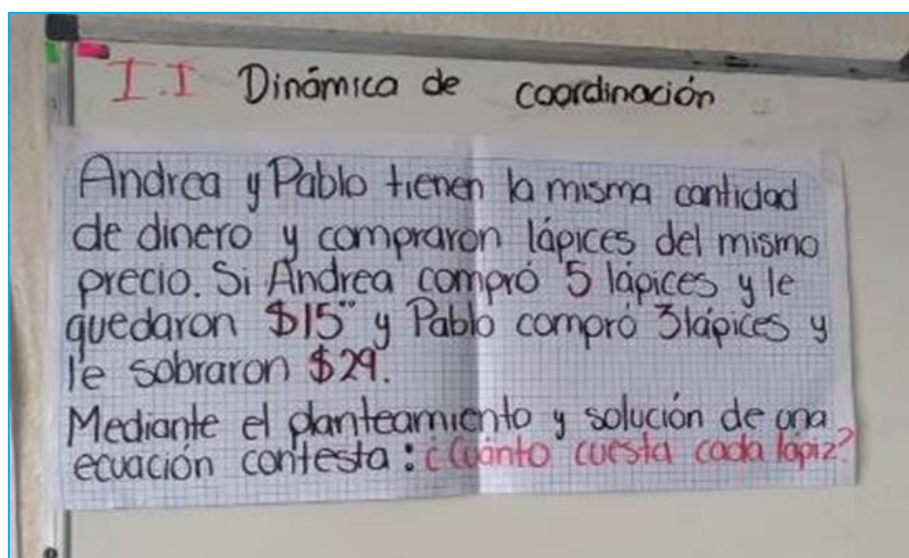 I.I Dinámica de coordinación
Andrea y Pablo tienen la misma cantidad
de dinero y compraron lápices del mismo
precio. Si Andrea compró 5 lápices y le
quedaron $15" y Pablo compró 3 lápices y
le sobraron $29.
Mediante el planteamiento y solución de una
ecuación contesta: ¿Cuánto cuesta cada lápiz?